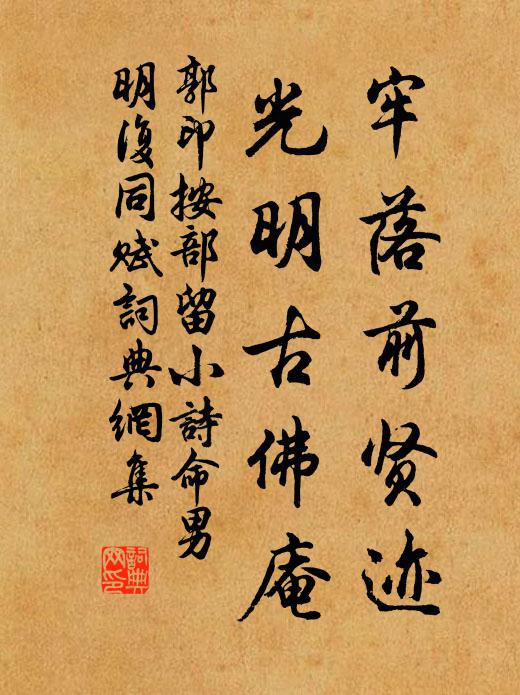 牢落前贤迹
光明古佛庵
郭印按部留小詩命男
明復同赋詞典網集
詞典网印